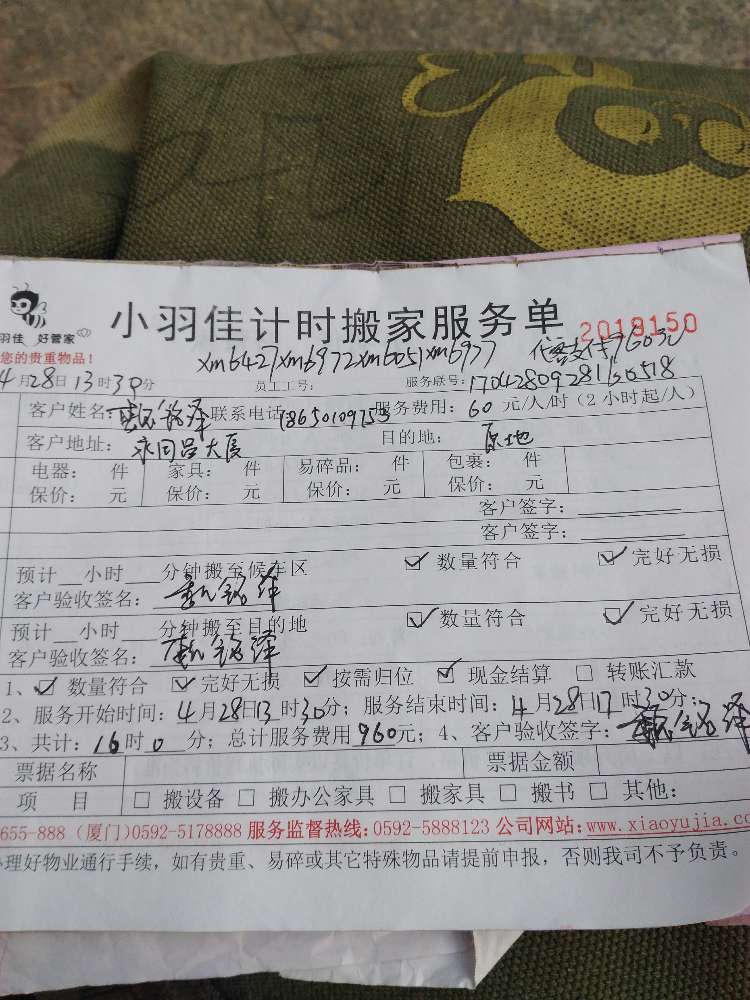 羽佳 好管家
小羽佳计时搬家服务单 2019150
您的贵重物品！
xm6427xm6972xm6051xm6977 支付960元
4月28日13时30分 员工工号： 服务账号：17042809281160518
客户姓名： 联系电话：18650109753 服务费用：60元/人/时（2小时起/人）
客户地址：永同昌大厦 目的地：原地
电器： 件 家具： 件 易碎品： 件 包裹： 件
保价： 元 保价： 元 保价： 元 保价： 元
客户签字：
客户签字：
预计__小时___分钟搬至候车区 ☑数量符合 ☑完好无损
客户验收签名：
预计__小时___分钟搬至目的地 ☑数量符合 ☑完好无损
客户验收签名：
1、☑数量符合 ☑完好无损 ☑按需归位 ☑现金结算 □转账汇款
2、服务开始时间：4月28日13时30分；服务结束时间：4月28日17时30分；
3、共计：16时0分；总计服务费用960元；4、客户验收签字：
票据名称 票据金额
项 目 □搬设备 □搬办公家具 □搬家具 □搬书 □其他：
655-888（厦门）0592-5178888 服务监督热线：0592-5888123 公司网站：www.xiaoyujia.com
理好物业通行手续，如有贵重、易碎或其它特殊物品请提前申报，否则我司不予负责。